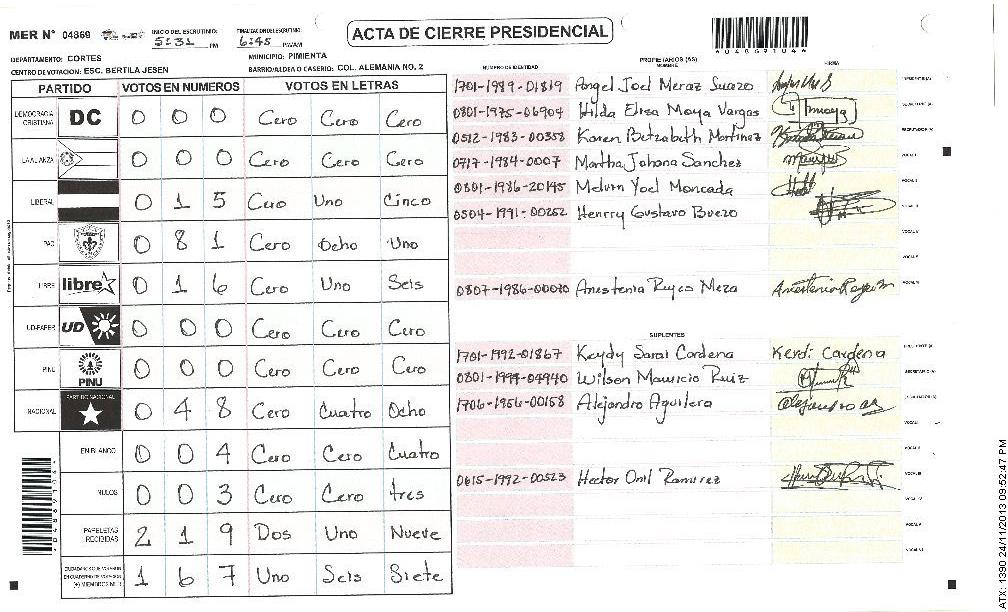 MER N° 04869
INICIO DEL ESCRUTINIO: 5:31 PM
FINALIZACION DE ESCRUTINIO: 6:45 PM/AM
ACTA DE CIERRE PRESIDENCIAL
DEPARTAMENTO: CORTES
MUNICIPIO: PIMIENTA
CENTRO DE VOTACION: ESC. BERTILA JESEN
BARRIO/ALDEA O CASERIO: COL. ALEMANIA NO. 2
PARTIDO VOTOS EN NUMEROS VOTOS EN LETRAS
DEMOCRACIA CRISTIANA DC 0 0 0 Cero Cero Cero
LA ALIANZA 0 0 0 Cero Cero Cero
LIBERAL 0 1 5 Cero Uno Cinco
PAC 0 8 1 Cero Ocho Uno
LIBRE libre 0 1 6 Cero Uno Seis
UD-FAPER UD 0 0 0 Cero Cero Cero
PINU PINU 0 0 0 Cero Cero Cero
NACIONAL PARTIDO NACIONAL 0 4 8 Cero Cuatro Ocho
EN BLANCO 0 0 4 Cero Cero Cuatro
NULOS 0 0 3 Cero Cero tres
PAPELETAS RECIBIDAS 2 1 9 Dos Uno Nueve
CIUDADANOS QUE VOTARON EN CUADERNO DE VOTACION (+) MIEMBROS MER 1 6 7 Uno Seis Siete
PROPIETARIOS (AS)
NUMERO DE IDENTIDAD NOMBRE FIRMA
1701-1989-01819 Angel Joel Meraz Suazo
0801-1975-06904 Hilda Elisa Maya Vargas
0512-1983-00358 Karen Betzabeth Martinez
0717-1984-0007 Martha Johana Sanchez
0801-1986-20145 Melvin Yoel Moncada
0504-1991-00252 Henrry Gustavo Buezo
0807-1986-00070 Anestenia Reyes Meza
SUPLENTES
1701-1992-01867 Keydy Sarai Cardena Keydi Cardena
0801-1994-04940 Wilson Mauricio Ruiz
1706-1956-00158 Alejandro Aguilera
0615-1992-00523 Hector Onil Ramirez
ATX: 1390 24/11/2013 09:52:47 PM